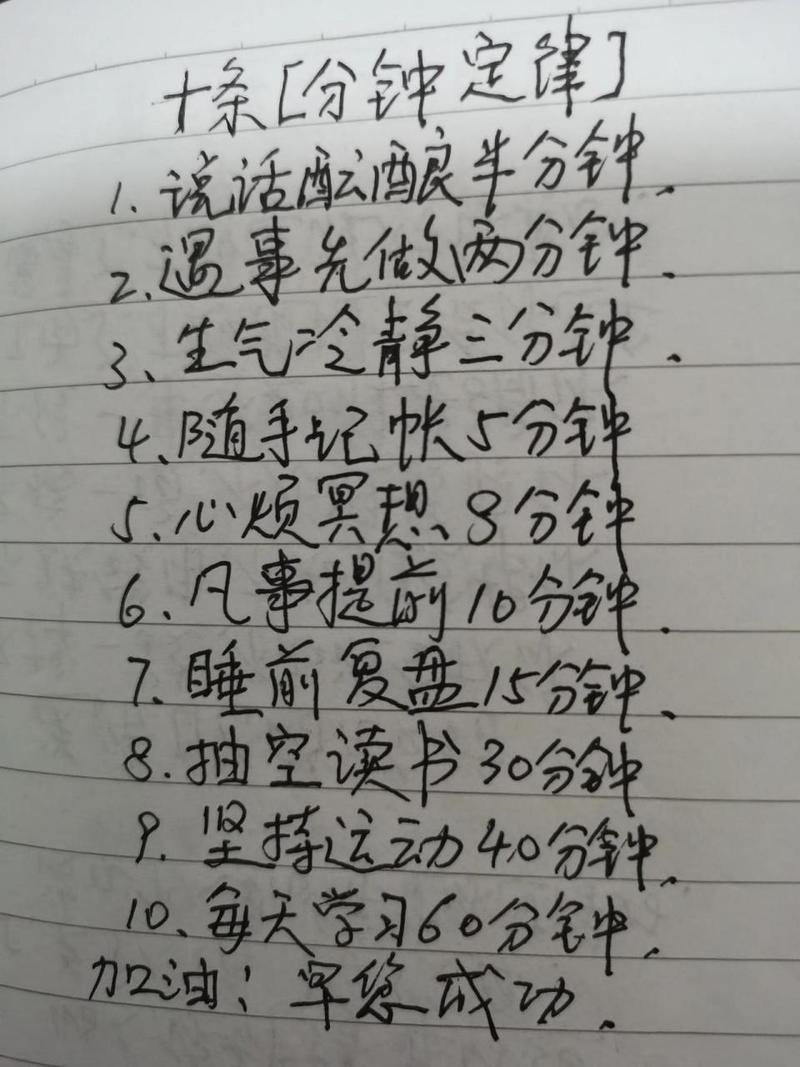 十条[分钟定律]
1.说话酝酿半分钟.
2、遇事先做两分钟.
3、生气冷静三分钟.
4、随手记帐5分钟
5.心烦冥想8分钟
6、凡事提前10分钟.
7.睡前复盘15分钟.
8.抽空读书30分钟
9.坚持运动40分钟.
10、每天学习60分钟.
加油!早您成功.